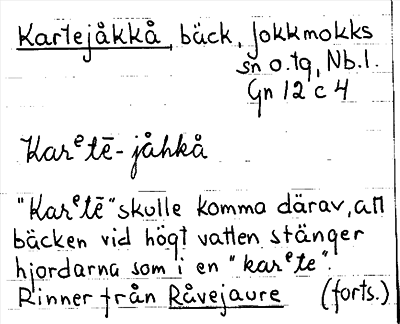 Kartejåkkå, bäck, Jokkmokks
sn o.tg, Nb.l.
Gn 12 c 4
Karᵉtē-jåhkå
"Karᵉtē" skulle komma därav, att
bäcken vid högt vatten stänger
hjordarna som i en "karᵉte".
Rinner från Råvejaure (forts.)